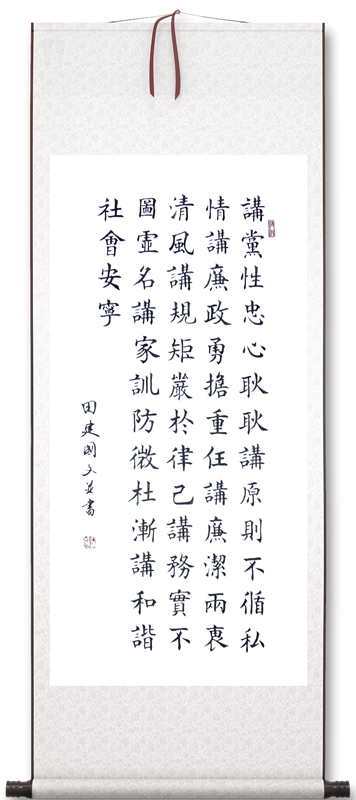 講黨性忠心耿耿講原則不循私
情講廉政勇擔重任講廉潔兩袁
清風講規矩嚴於律己講務實不
圖虛名講家訓防微杜漸講和諧
社會安寧
田建國文並書